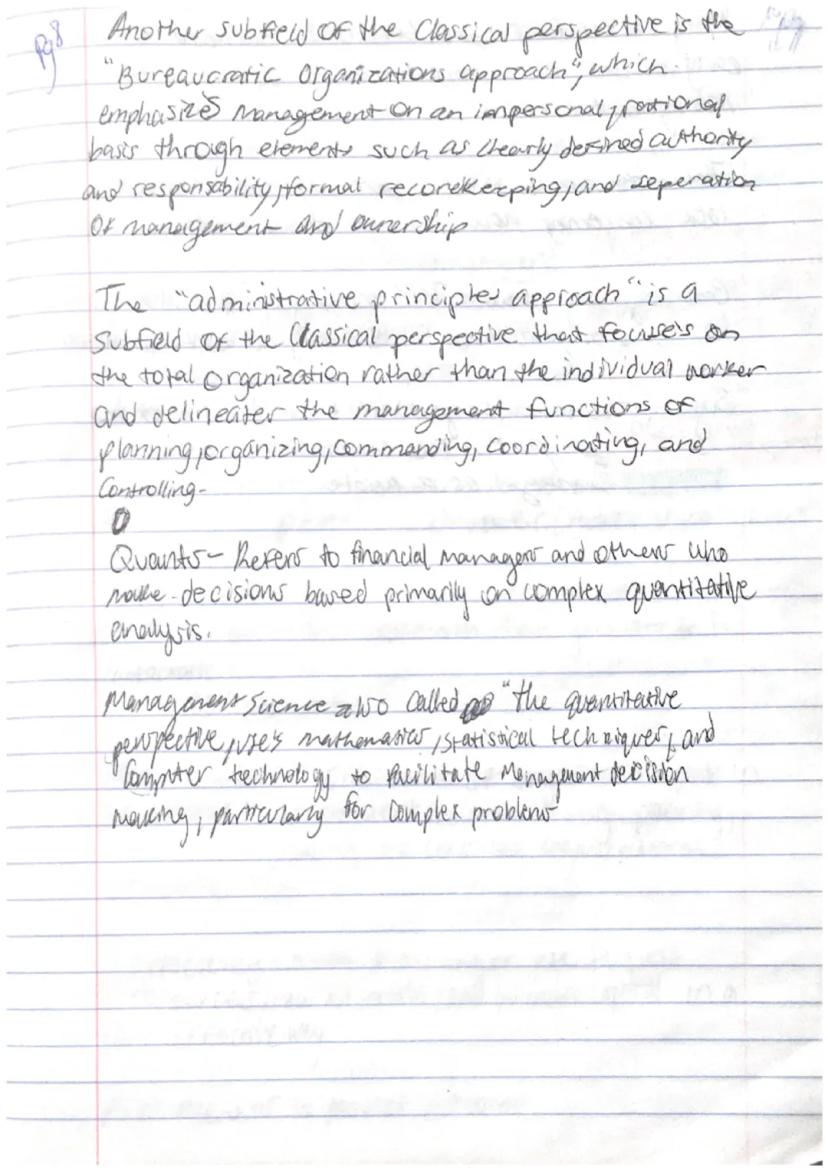 pg 8
Another subfield of the Classical perspective is the
"Bureaucratic Organizations approach", which
emphasizes management on an impersonal, rational
basis through elements such as clearly defined authority
and responsability, formal recordkeeping, and seperation
of management and ownership
The "administrative principles approach" is a
subfield of the Classical perspective that focuses on
the total organization rather than the individual worker
and delineates the management functions of
planning, organizing, commanding, coordinating, and
Controlling.
Quants - Refers to financial managers and others who
make decisions based primarily on complex quantitative
analysis.
Management Science also called "the quantitative
perspective, uses mathematics, statistical techniques, and
Computer technology to facilitate Management decision
making, particularly for complex problems